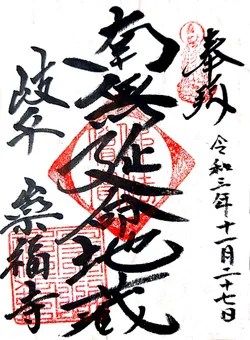 奉拝
令和三年十一月二十七日
南無延命地蔵
岐阜
崇福寺